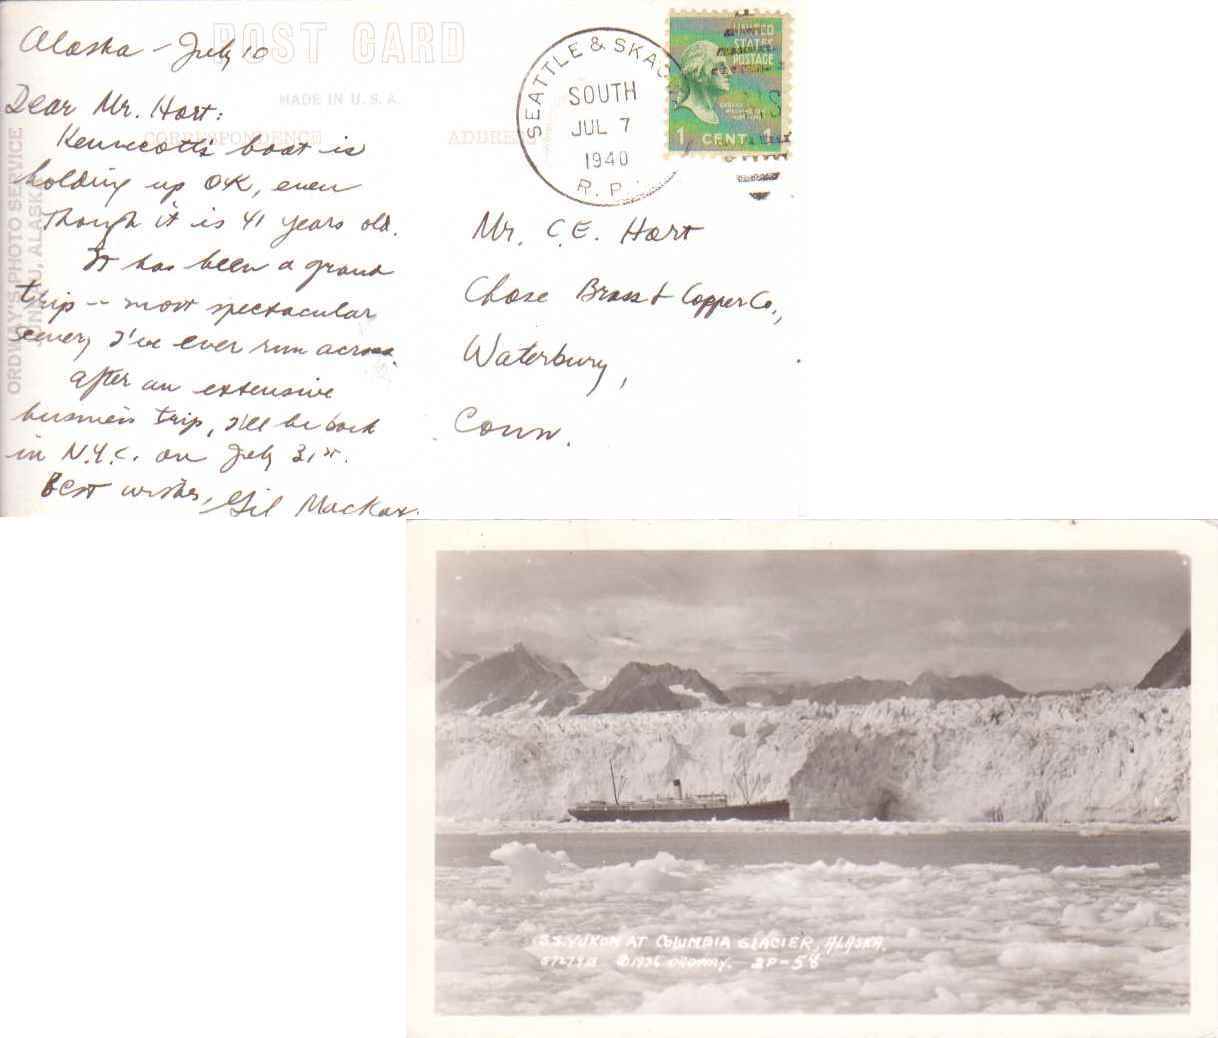 POST CARD
MADE IN U.S.A.
CORRESPONDENCE
ADDRESS
ORDWAY'S PHOTO SERVICE
JUNEAU, ALASKA
Alaska - July 10
Dear Mr. Hart:
Kennecott's boat is
holding up OK, even
though it is 41 years old.
It has been a grand
trip -- most spectacular
scenery I've ever run across.
After an extensive
business trip, I'll be back
in N.Y.C. on July 31st.
Best wishes,
Gil Mackay.
SEATTLE & SKAG
SOUTH
JUL 7
1940
R.P.
UNITED
STATES
POSTAGE
1 CENT 1
Mr. C.E. Hart
Chase Brass & Copper Co.,
Waterbury,
Conn.
S.S. YUKON AT COLUMBIA GLACIER, ALASKA.
©1936 ORDWAY. 2P-58